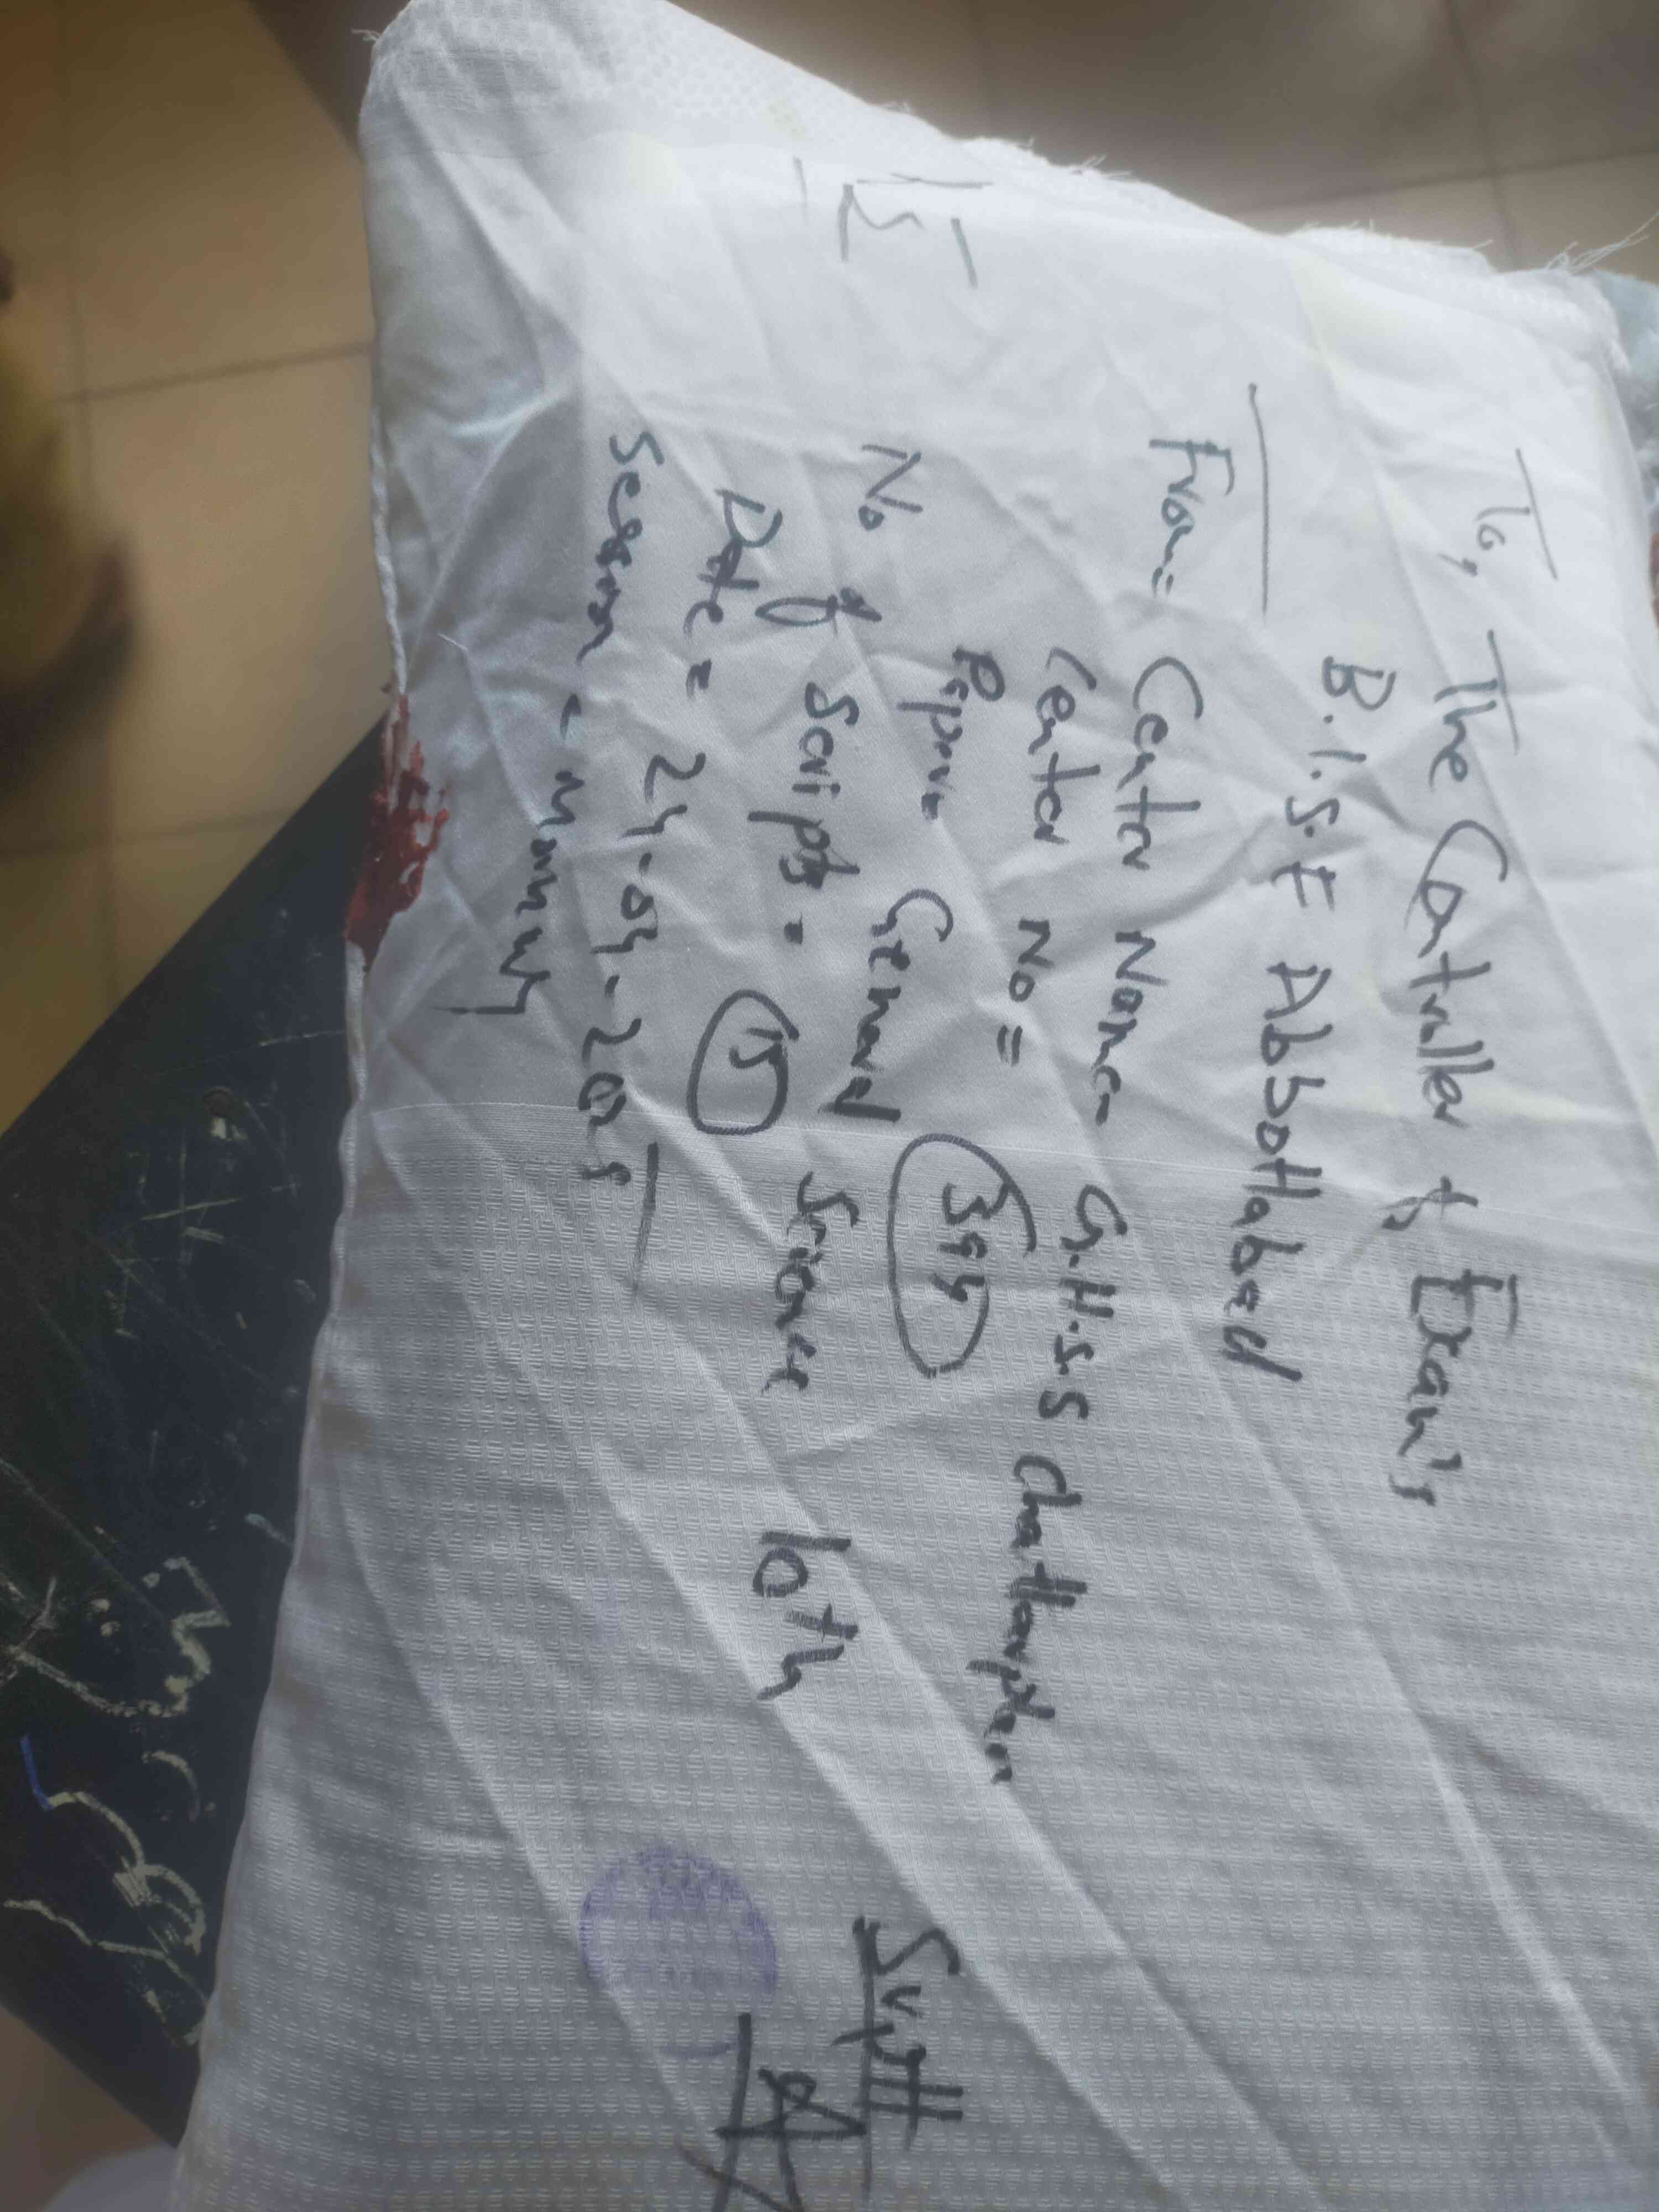 To, The Controller of Exam's
B.I.S.E Abbottabad
From= Center Name= G.H.S.S Chattarplain
Center No = 394
Paper= General Science 10th
No of Scripts = 15
Date = 24-04-2025
Session = Morning
Suptt